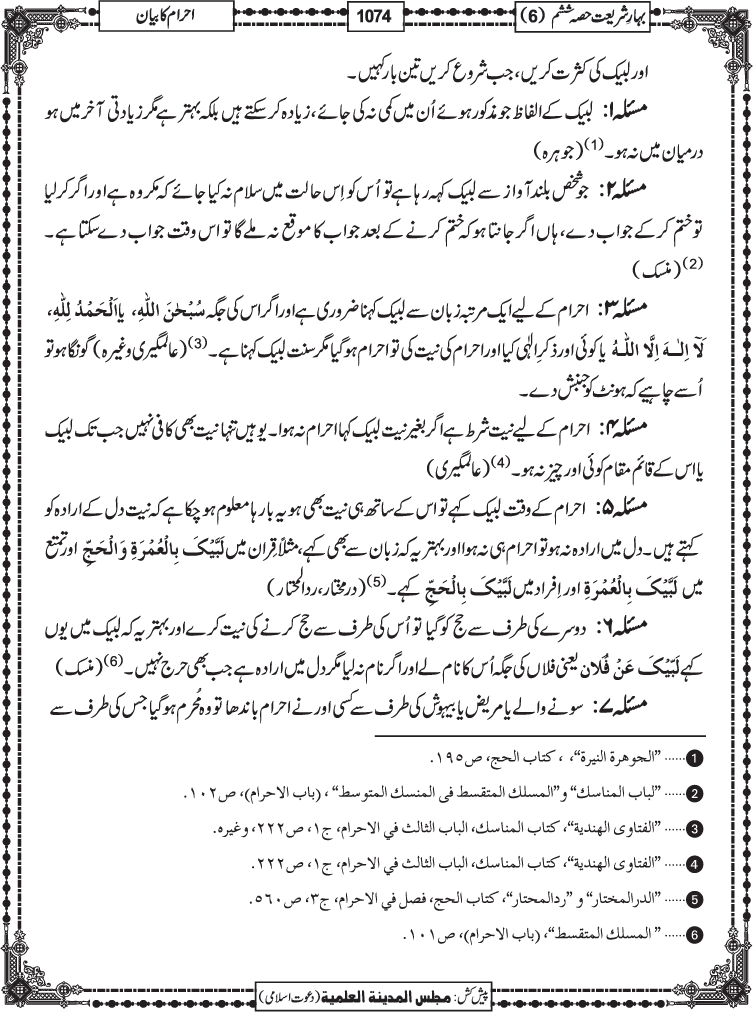 بہارِ شریعت حصہ ششم (6)
1074
احرام کا بیان
اور لبیک کی کثرت کریں، جب شروع کریں تین بار کہیں۔
مسئلہ ۱: لبیک کے الفاظ جو مذکور ہوئے اُن میں کمی نہ کی جائے، زیادہ کرسکتے ہیں بلکہ بہتر ہے مگر زیادتی آخر میں ہو
درمیان میں نہ ہو۔(1) (جوہرہ)
مسئلہ ۲: جو شخص بلند آواز سے لبیک کہہ رہا ہے تو اُس کو اِس حالت میں سلام نہ کیا جائے کہ مکروہ ہے اور اگر کرلیا
تو ختم کرکے جواب دے، ہاں اگر جانتا ہو کہ ختم کرنے کے بعد جواب کا موقع نہ ملے گا تو اس وقت جواب دے سکتا ہے۔
(2) (منسک)
مسئلہ ۳: احرام کے لیے ایک مرتبہ زبان سے لبیک کہنا ضروری ہے اور اگر اس کی جگہ سُبْحٰنَ اللّٰہِ، یا اَلْحَمْدُ لِلّٰہِ،
لَآ اِلٰـہَ اِلَّا اللّٰـہُ یا کوئی اور ذکرِ الٰہی کیا اور احرام کی نیت کی تو احرام ہوگیا مگر سنت لبیک کہنا ہے۔(3) (عالمگیری وغیرہ) گونگا ہو تو
اُسے چاہیے کہ ہونٹ کو جنبش دے۔
مسئلہ ۴: احرام کے لیے نیت شرط ہے اگر بغیر نیت لبیک کہا احرام نہ ہوا۔ یوہیں تنہا نیت بھی کافی نہیں جب تک لبیک
یا اس کے قائم مقام کوئی اور چیز نہ ہو۔(4) (عالمگیری)
مسئلہ ۵: احرام کے وقت لبیک کہے تو اس کے ساتھ ہی نیت بھی ہو یہ بارہا معلوم ہوچکا ہے کہ نیت دل کے ارادہ کو
کہتے ہیں۔ دل میں ارادہ نہ ہو تو احرام ہی نہ ہوا اور بہتر یہ کہ زبان سے بھی کہے، مثلاً قِران میں لَبَّیْکَ بِالْعُمْرَۃِ وَالْحَجِّ اور تمتع
میں لَبَّیْکَ بِالْعُمْرَۃِ اور اِفراد میں لَبَّیْکَ بِالْحَجِّ کہے۔(5) (درمختار، ردالمحتار)
مسئلہ ۶: دوسرے کی طرف سے حج کو گیا تو اُس کی طرف سے حج کرنے کی نیت کرے اور بہتر یہ کہ لبیک میں یوں
کہے لَبَّیْکَ عَنْ فُلَان یعنی فلاں کی جگہ اُس کا نام لے اور اگر نام نہ لیا مگر دل میں ارادہ ہے جب بھی حرج نہیں۔(6) (منسک)
مسئلہ ۷: سونے والے یا مریض یا بیہوش کی طرف سے کسی اور نے احرام باندھا تو وہ مُحرِم ہوگیا جس کی طرف سے
1 ...... ”الجوهرة النيرة“، ، كتاب الحج، ص١٩٥.
2 ...... ”لباب المناسك“ و”المسلك المتقسط فى المنسك المتوسط“ ، (باب الاحرام)، ص١٠٢.
3 ...... ”الفتاوى الهندية“، كتاب المناسك، الباب الثالث في الاحرام، ج١، ص٢٢٢، وغيره.
4 ...... ”الفتاوى الهندية“، كتاب المناسك، الباب الثالث في الاحرام، ج١، ص٢٢٢.
5 ...... ”الدرالمختار“ و ”ردالمحتار“، كتاب الحج، فصل في الاحرام، ج٣، ص٥٦٠.
6 ...... ” المسلك المتقسط“، (باب الاحرام)، ص١٠١.
پیش کش: مجلس المدینة العلمیة (دعوت اسلامی)